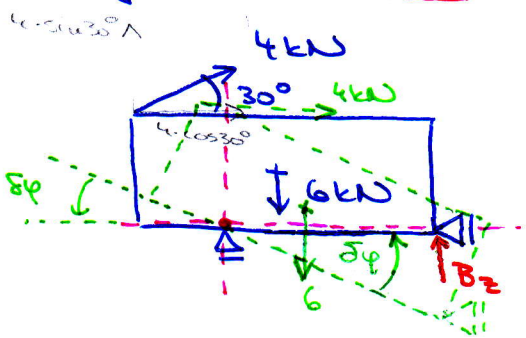 4·sin30°
4kN
30°
4kN
4·cos30°
δφ
6kN
δφ
Bz
6